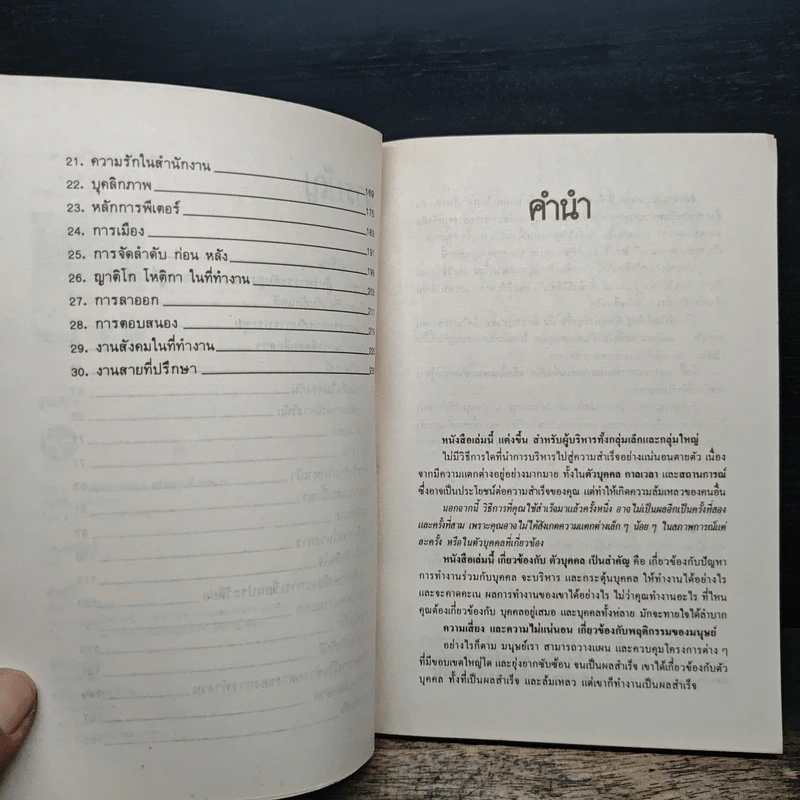 21. ความรักในสำนักงาน 169
22. บุคลิกภาพ 175
23. หลักการพีเตอร์ 183
24. การเมือง 191
25. การจัดลำดับ ก่อน หลัง 199
26. ญาติโก โหติกา ในที่ทำงาน 205
27. การลาออก
28. การตอบสนอง
29. งานสังคมในที่ทำงาน
30. งานสายที่ปรึกษา
คำนำ
หนังสือเล่มนี้ แต่งขึ้น สำหรับผู้บริหารทั้งกลุ่มเล็กและกลุ่มใหญ่
ไม่มีวิธีการใดที่นำการบริหารไปสู่ความสำเร็จอย่างแน่นอนตายตัว เนื่อง
จากมีความแตกต่างอยู่อย่างมากมาย ทั้งในตัวบุคคล กาลเวลา และสถานการณ์
ซึ่งอาจเป็นประโยชน์ต่อความสำเร็จของคุณ แต่ทำให้เกิดความล้มเหลวของคนอื่น
นอกจากนี้ วิธีการที่คุณใช้สำเร็จมาแล้วครั้งหนึ่ง อาจไม่เป็นผลอีกเป็นครั้งที่สอง
และครั้งที่สาม เพราะคุณอาจไม่ได้สังเกตความแตกต่างเล็ก ๆ น้อย ๆ ในสภาพการณ์แต่
ละครั้ง หรือในตัวบุคคลที่เกี่ยวข้อง
หนังสือเล่มนี้ เกี่ยวข้องกับ ตัวบุคคล เป็นสำคัญ คือ เกี่ยวข้องกับปัญหา
การทำงานร่วมกับบุคคล จะบริหาร และกระตุ้นบุคคล ให้ทำงานได้อย่างไร
และจะคาดคะเน ผลการทำงานของเขาได้อย่างไร ไม่ว่าคุณทำงานอะไร ที่ไหน
คุณต้องเกี่ยวข้องกับ บุคคลอยู่เสมอ และบุคคลทั้งหลาย มักจะทายใจได้ลำบาก
ความเสี่ยง และความไม่แน่นอน เกี่ยวข้องกับพฤติกรรมของมนุษย์
อย่างไรก็ตาม มนุษย์เรา สามารถวางแผน และควบคุมโครงการต่าง ๆ
ที่มีขอบเขตใหญ่โต และยุ่งยากซับซ้อน จนเป็นผลสำเร็จ เขาได้เกี่ยวข้องกับตัว
บุคคล ทั้งที่เป็นผลสำเร็จ และล้มเหลว แต่เขาก็ทำงานเป็นผลสำเร็จ